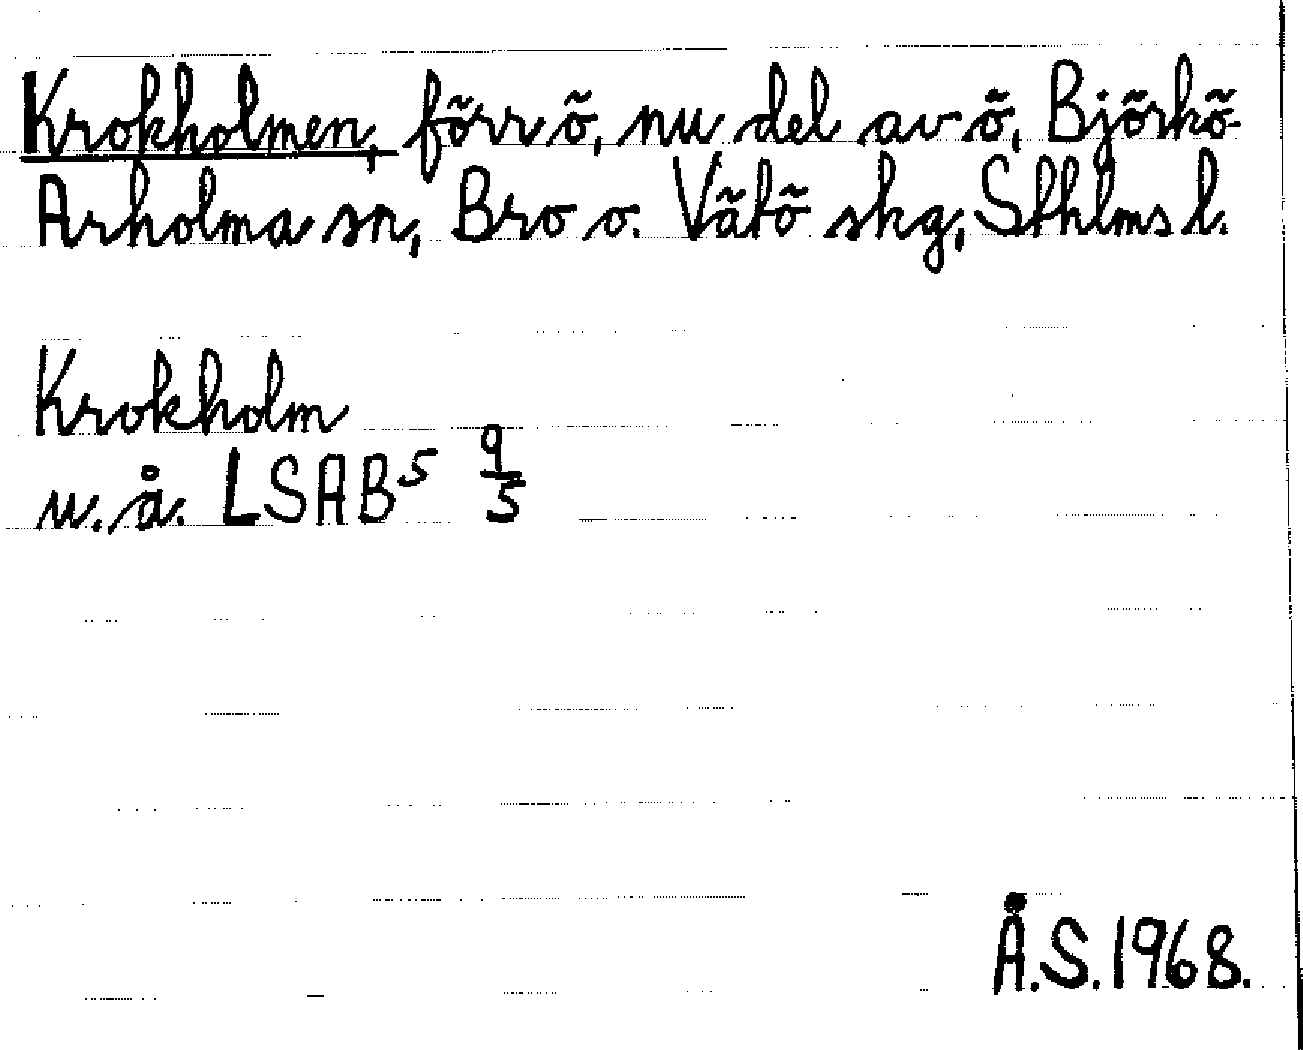 Krokholmen, förr ö, nu del av ö, Björkö-
Arholma sn, Bro o. Vätö skg, Sthlms l.
Krokholm
u. å. LSAB⁵ 9/5
Å.S. 1968.